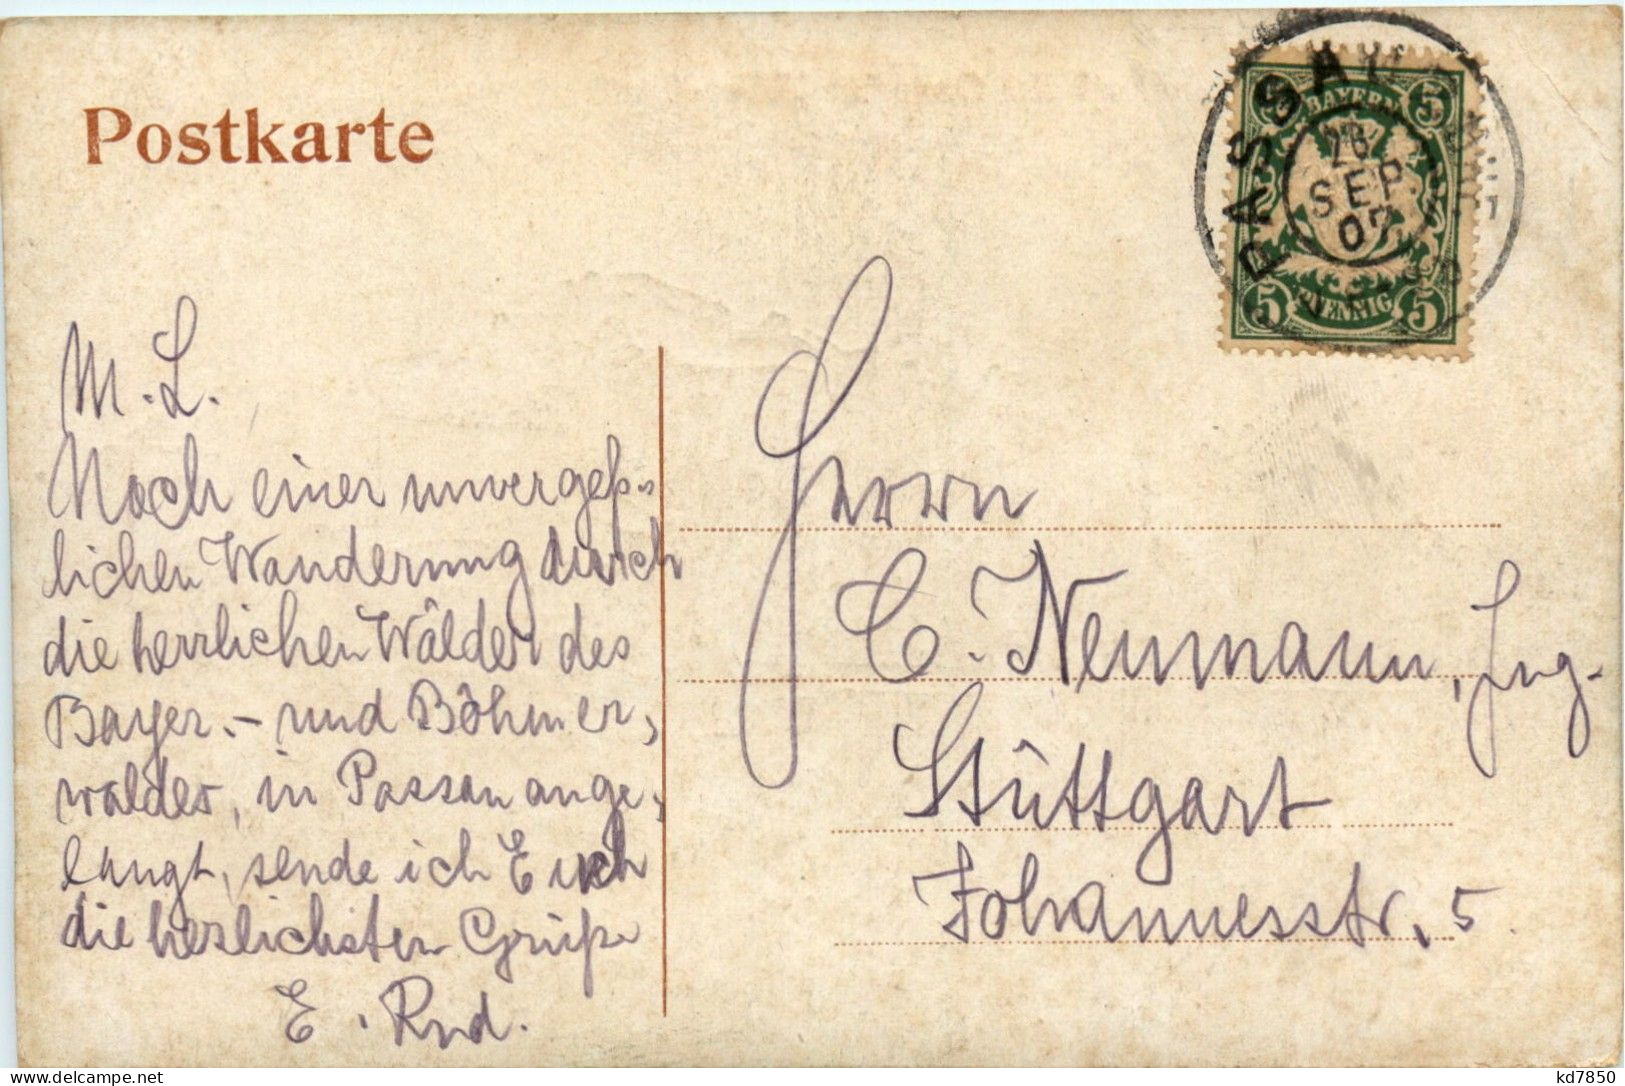 Postkarte
PASSAU
BAYERN
5 5
SEP.
07
5 PFENNIG 5
M. L.
Nach einer unvergeß-
lichen Wanderung durch
die herrlichen Wälder des
Bayer.- und Böhmer-
waldes, in Passau ange-
langt, sende ich Euch
die herzlichsten Grüße
E. Rud.
Herrn
C. Neumann, Ing.
Stuttgart
Johannesstr. 5.
delcampe.net
kd7850